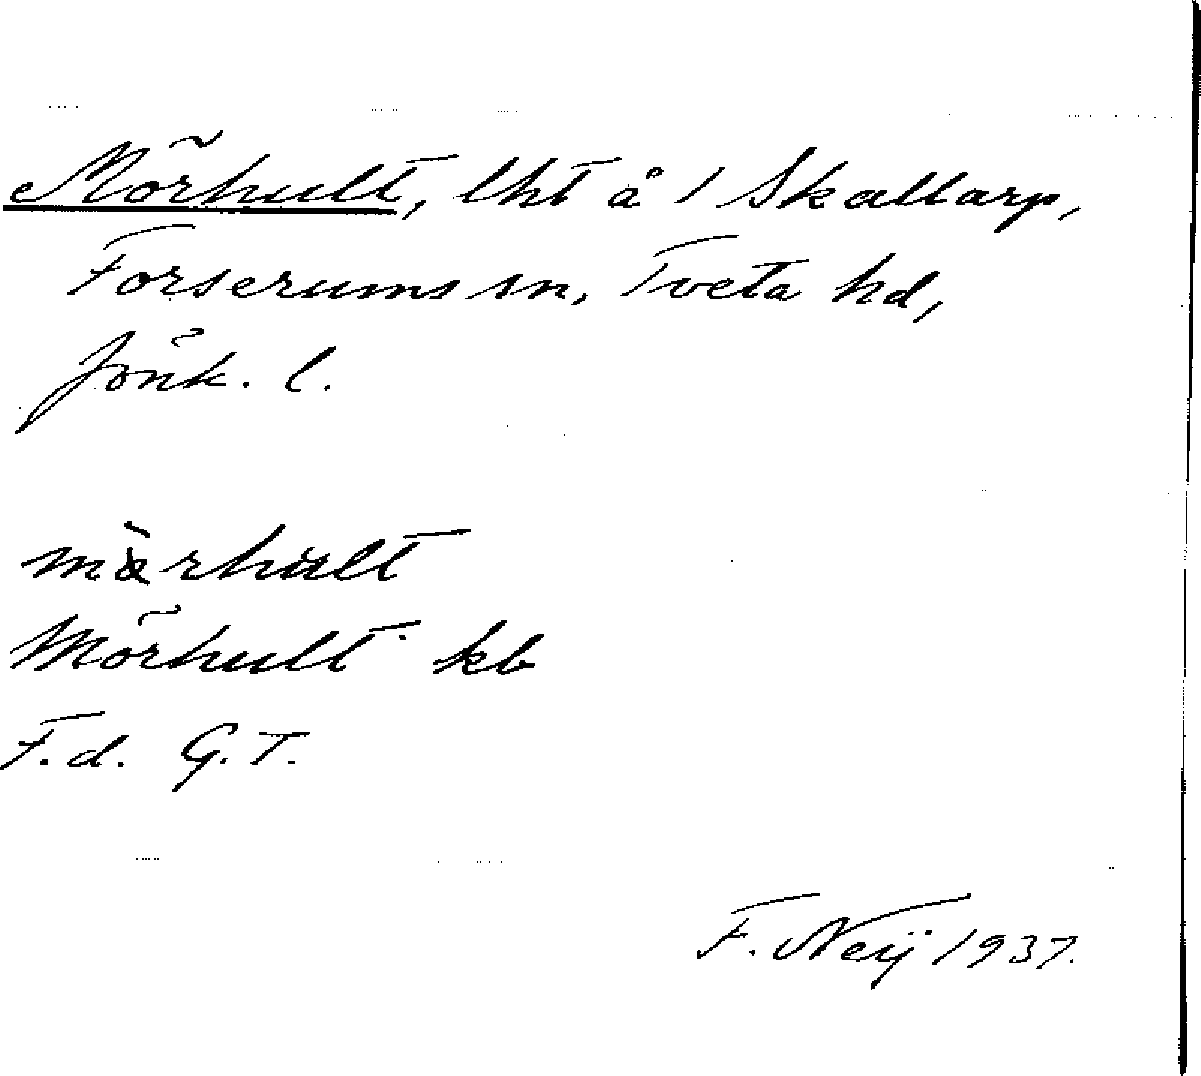 Mörhult, lht å 1 Skallarp,
Forserums sn, Tveta hd,
Jönk. l.
Mörhult kb
F.d. G.T.
F. Neij 1937.